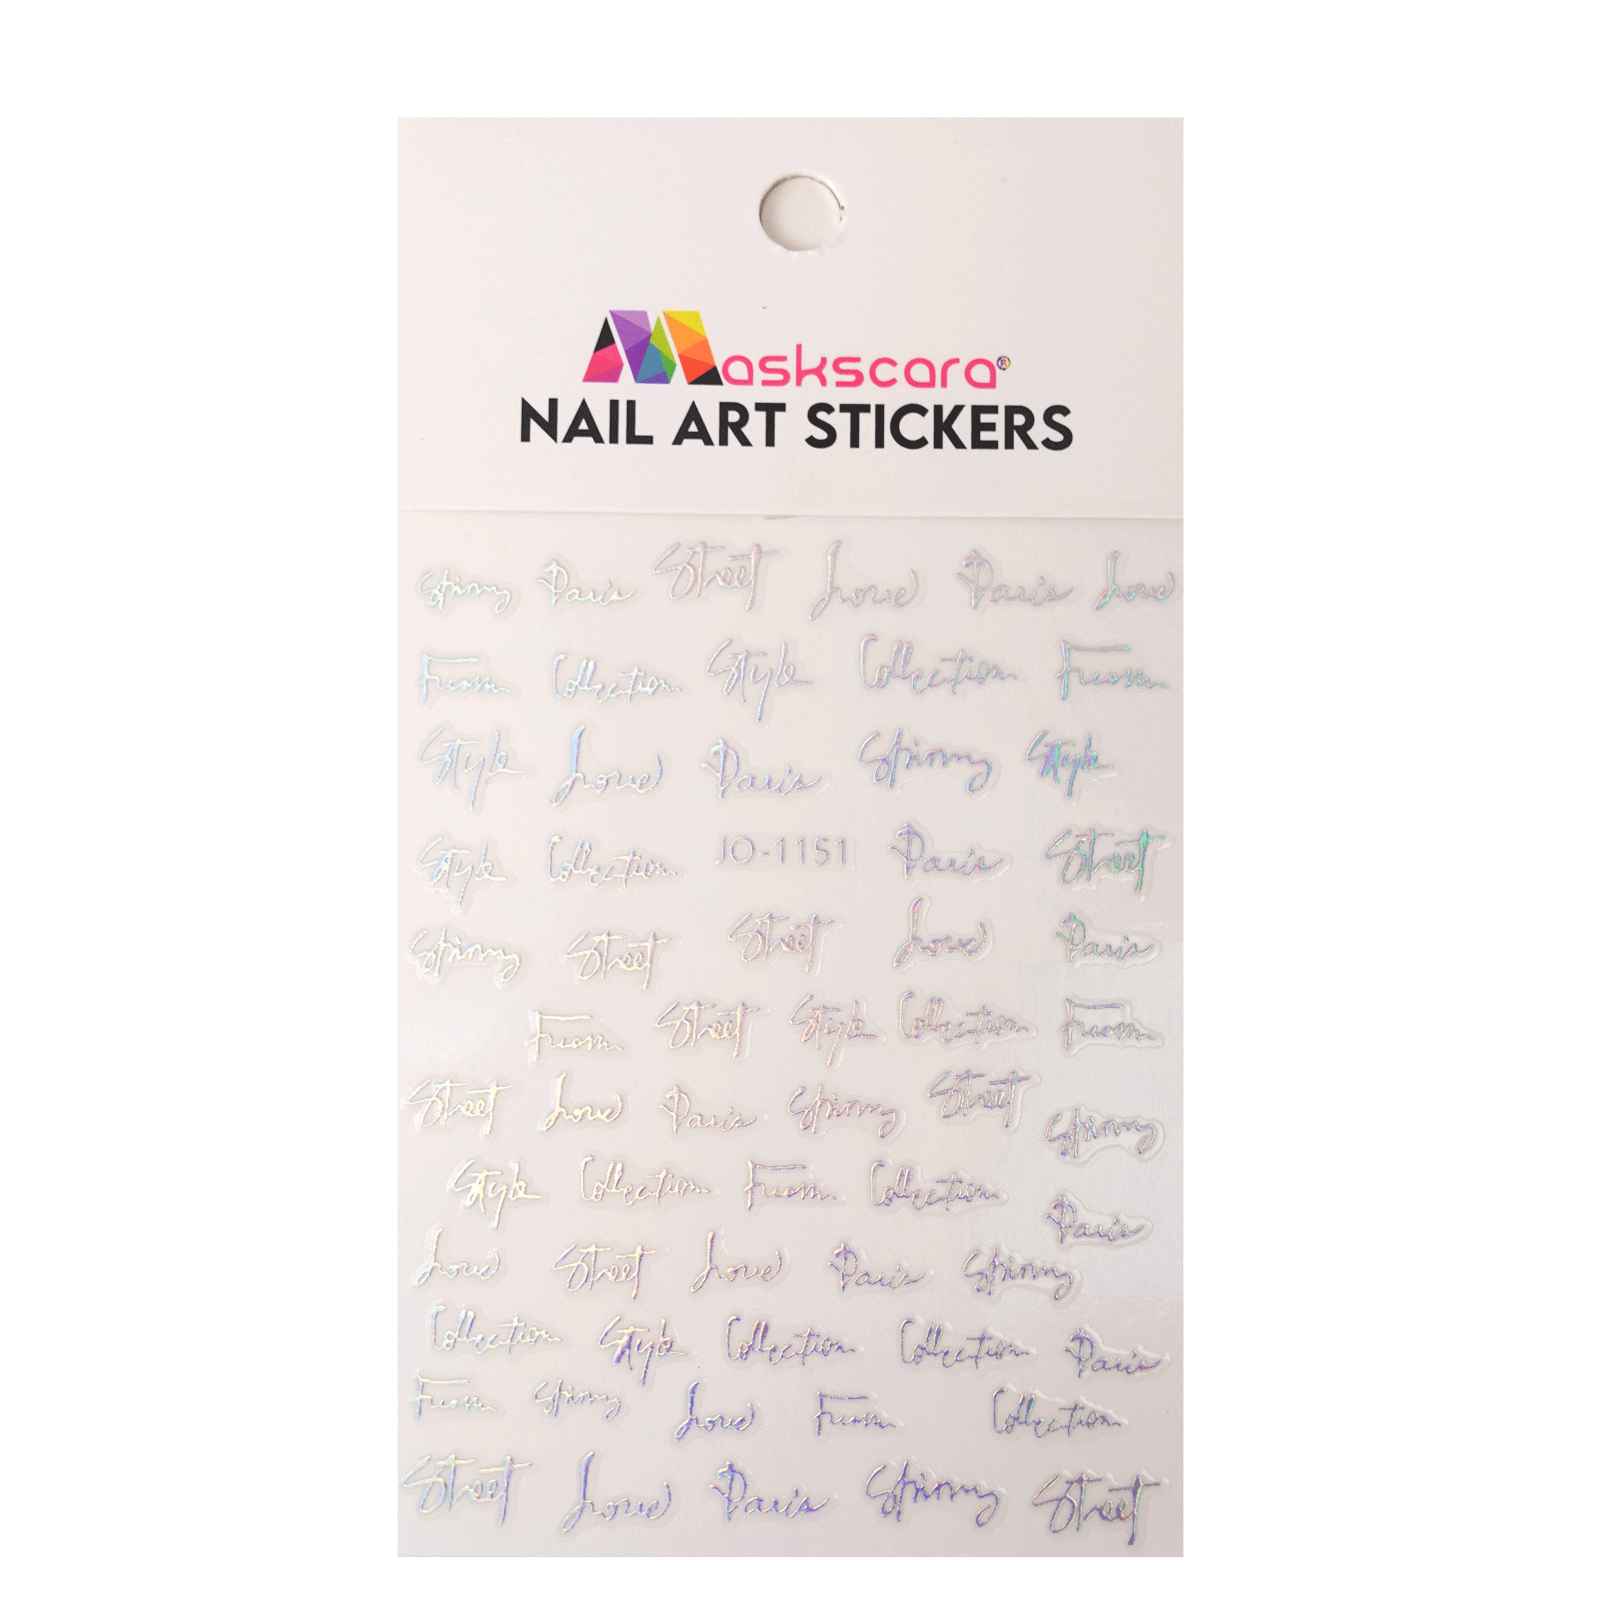 Maskscara®
NAIL ART STICKERS
Paris Street Love Paris Love
Collection Style Collection
Style Love Paris Style
Style Collection JO-1151 Paris Street
Street Street Love Paris
Street Style Collection
Street Love Paris Street
Style Collection Collection
Paris
Love Street Love Paris
Collection Style Collection Collection Paris
Love Collection
Street Love Paris Street